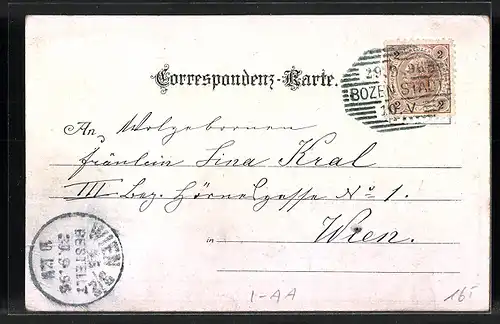 Correspondenz-Karte.
2 2
29.
BOZEN STADT
10 V
2 2
An Wolgebornen
Fräulein Lina Kral
III Bez. Hörnesgasse No 1.
in Wien.
WIEN
BESTELLT
29.9.98
I-AA
16.-